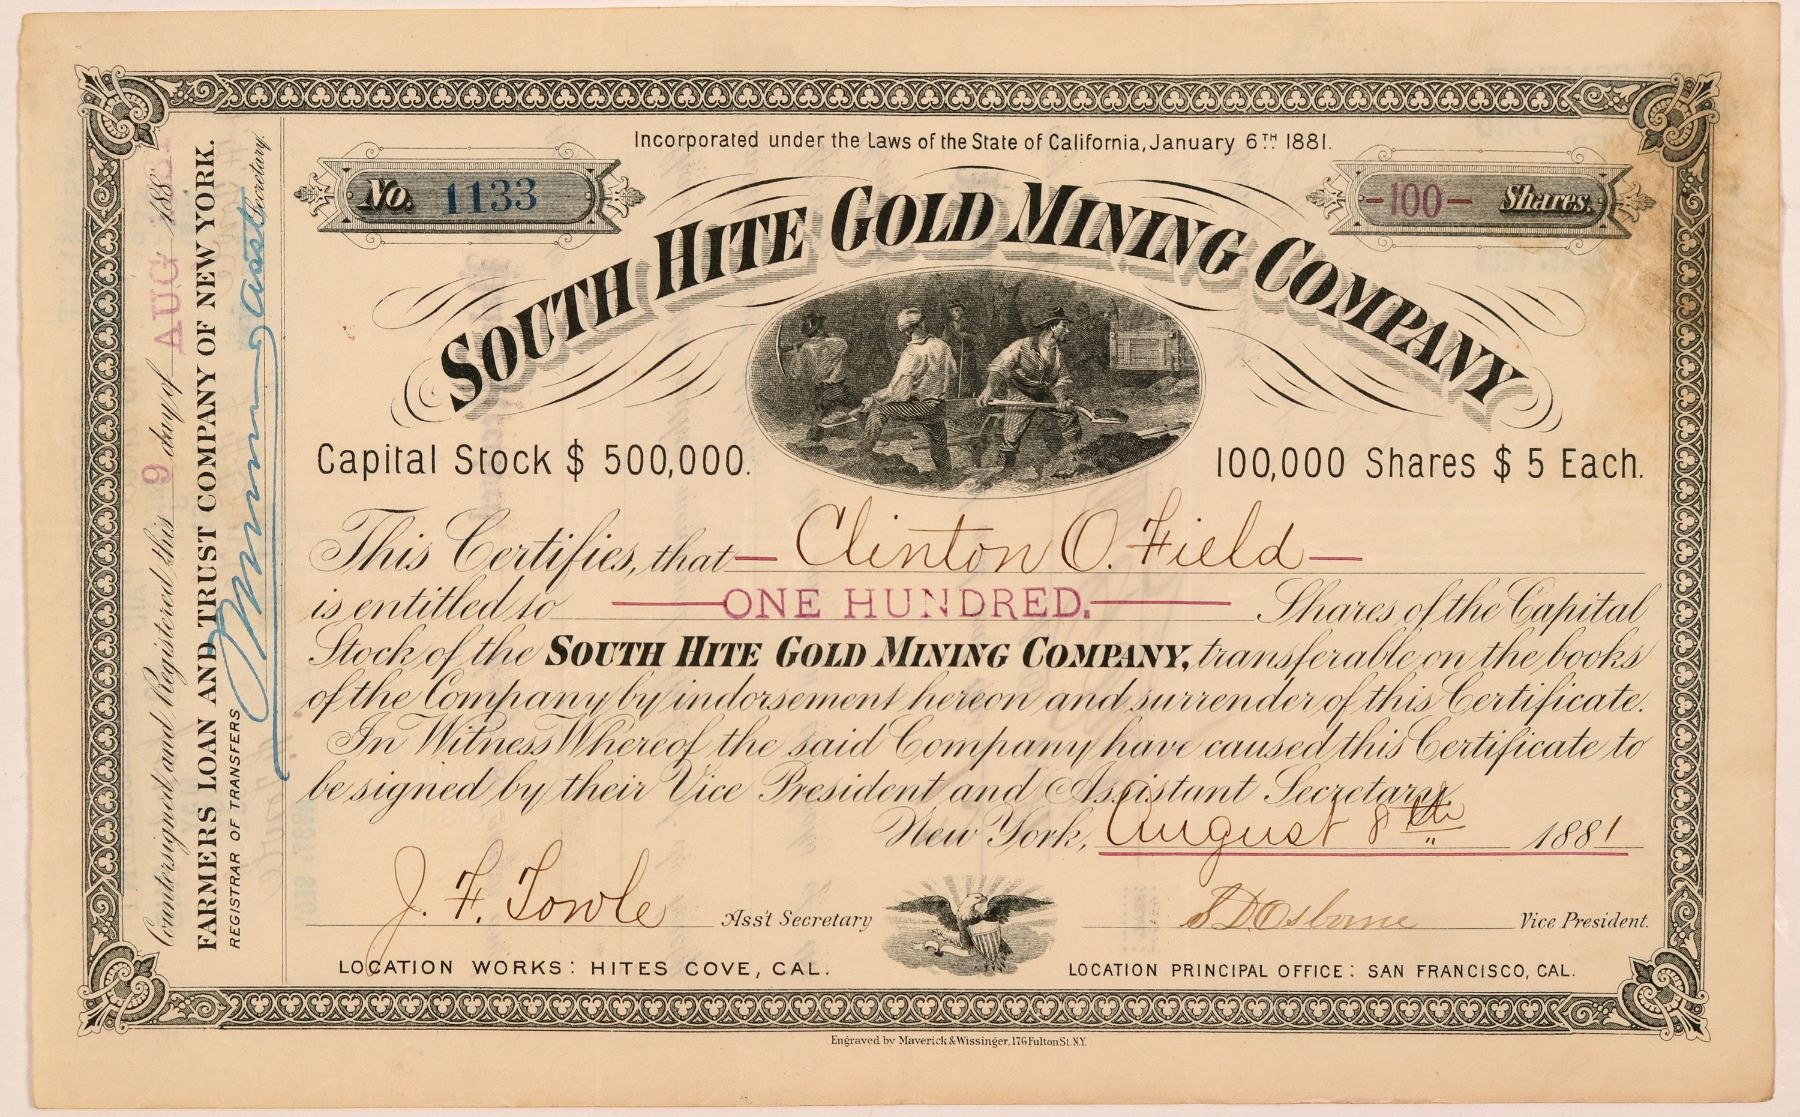 Incorporated under the Laws of the State of California, January 6TH 1881.
No. 1133
-100- Shares.
SOUTH HITE GOLD MINING COMPANY
Capital Stock $ 500,000.
100,000 Shares $ 5 Each.
This Certifies, that — Clinton O. Field —
is entitled to — ONE HUNDRED. — Shares of the Capital
Stock of the SOUTH HITE GOLD MINING COMPANY, transferable on the books
of the Company by indorsement hereon and surrender of this Certificate.
In Witness Whereof the said Company have caused this Certificate to
be signed by their Vice President and Assistant Secretary.
New York, August 8th 1881
J. F. Towle Ass't Secretary
S D Osborne Vice President.
LOCATION WORKS: HITES COVE, CAL.
LOCATION PRINCIPAL OFFICE: SAN FRANCISCO, CAL.
Engraved by Maverick & Wissinger, 176 Fulton St. N.Y.
Countersigned and Registered this 9 day of AUG 1881
FARMERS LOAN AND TRUST COMPANY OF NEW YORK.
REGISTRAR OF TRANSFERS
Asst Secretary.